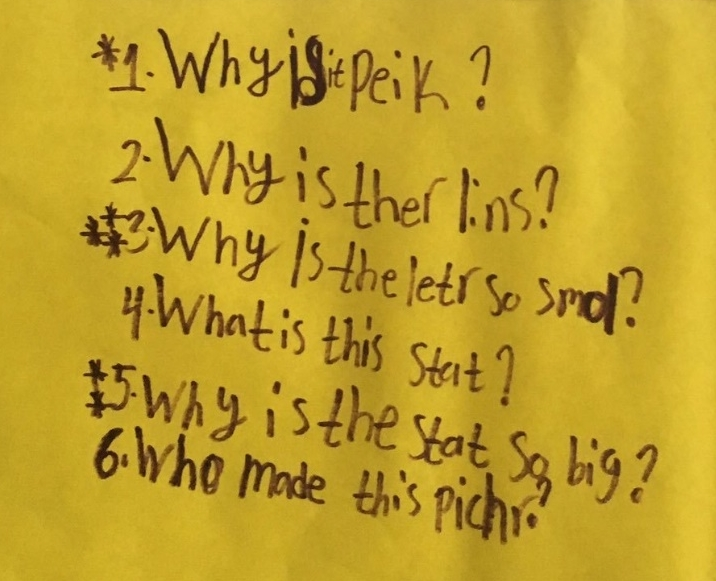 *1. Why is it peik?
2. Why is ther lins?
***3. Why is the letr so smol?
4. What is this stat?
**5. Why is the stat so big?
6. Who made this pichr?